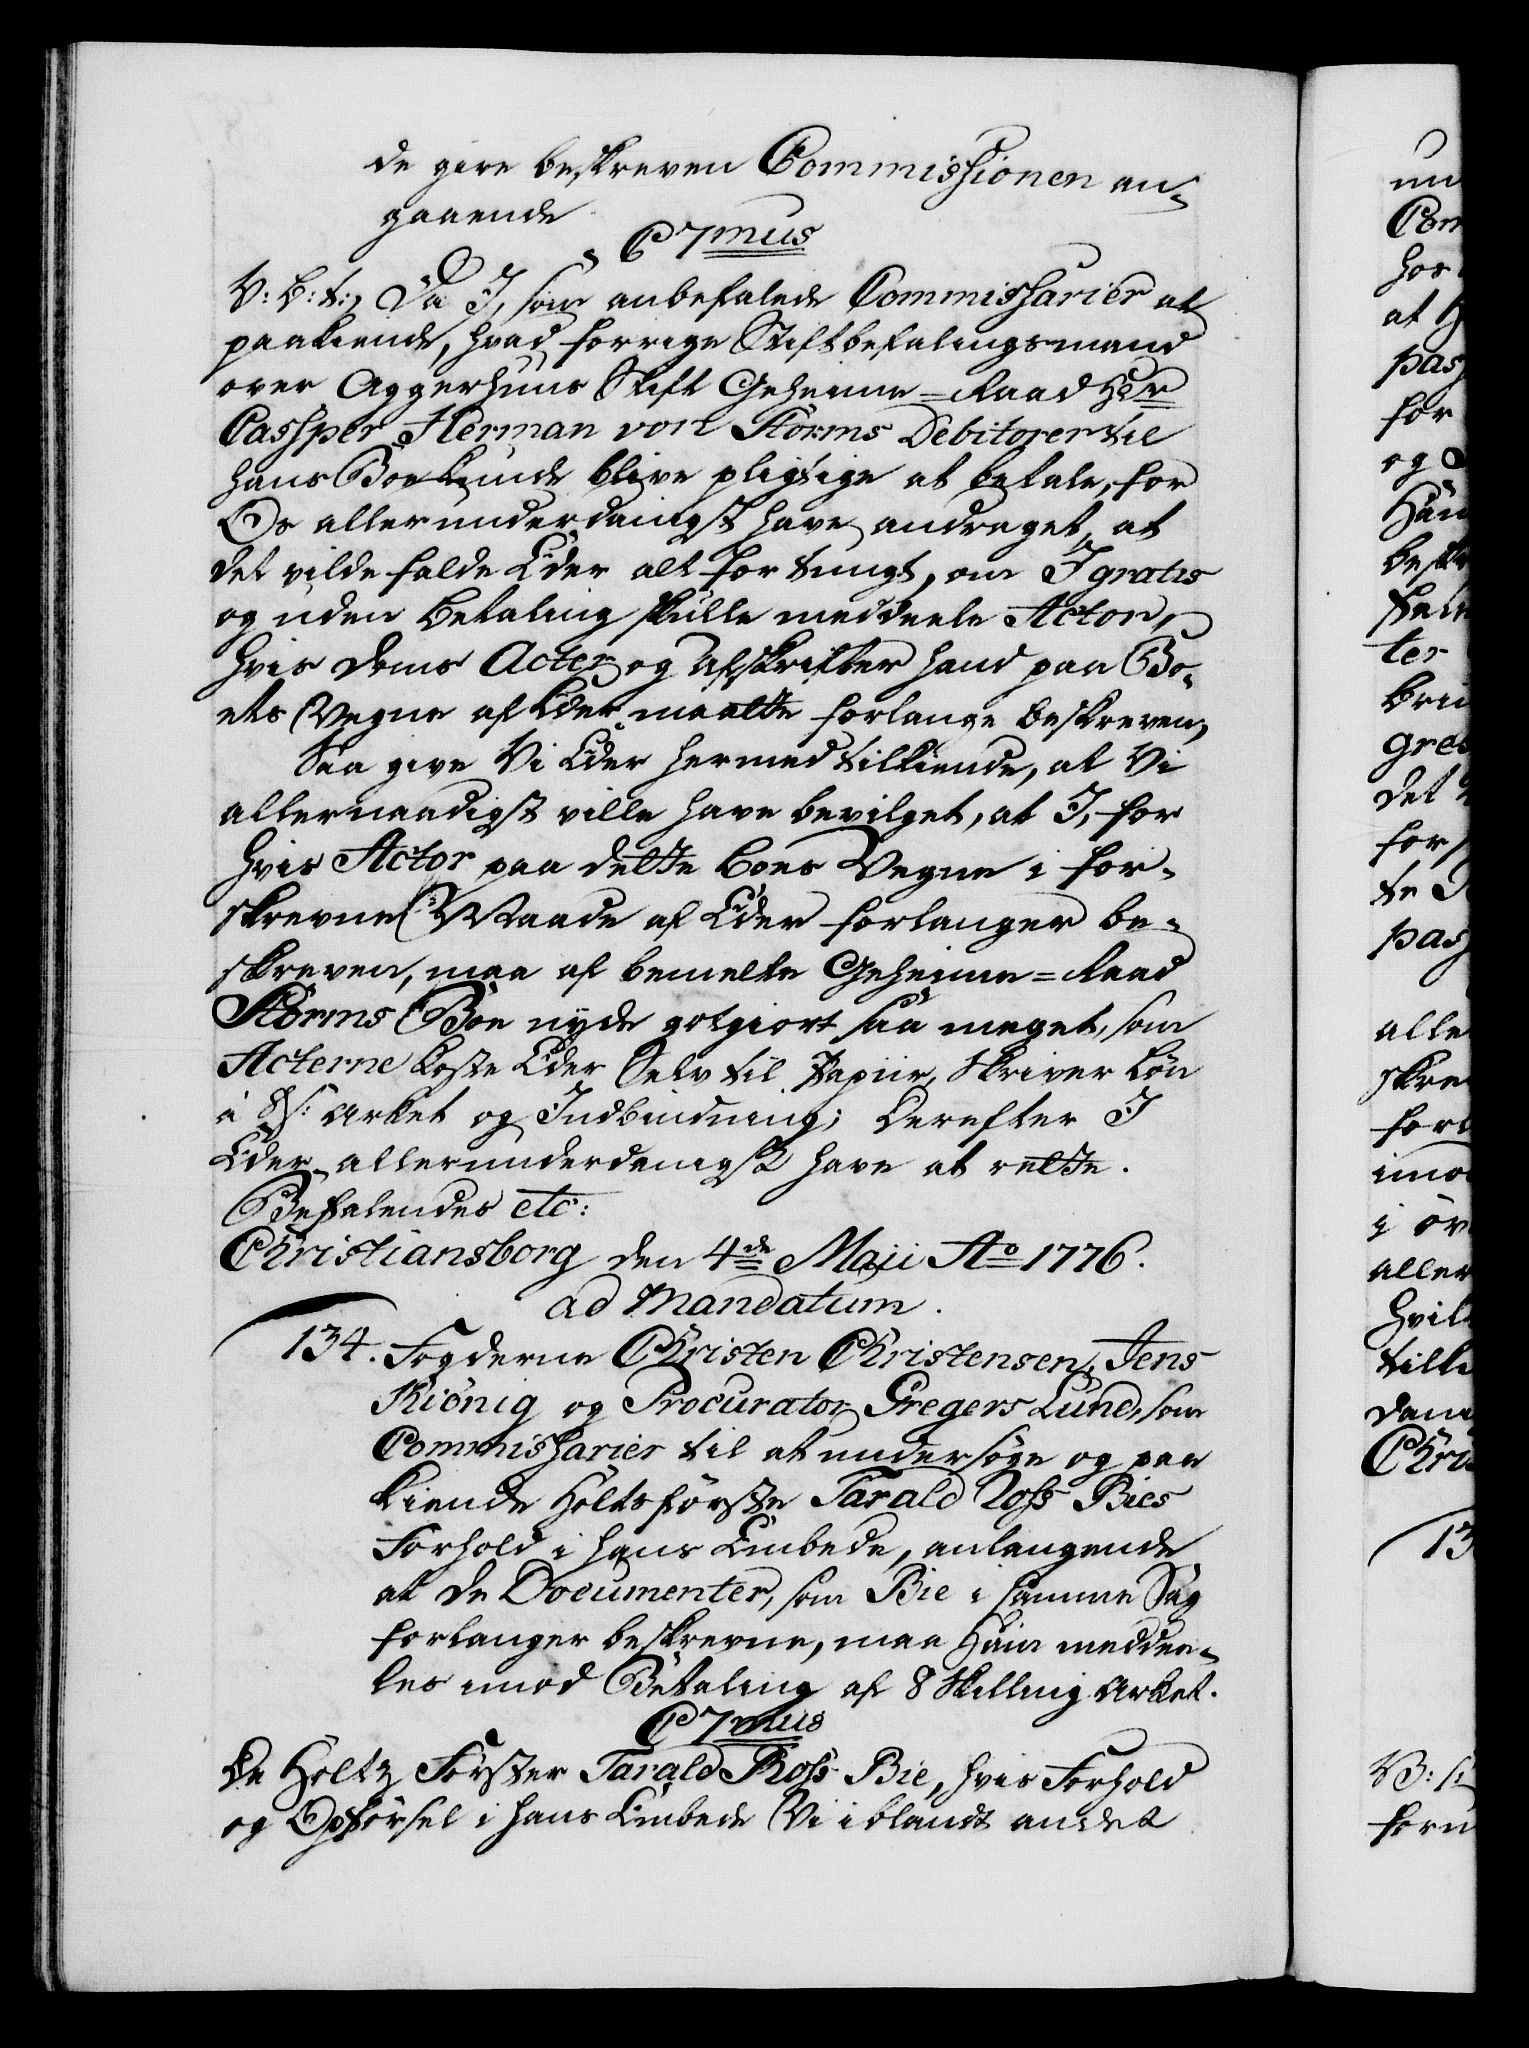 de give beskreven Commissionen an-
gaaende.
C7mus
V: B: t:, Da I, som anbefalede Commissarier at
paakiende, hvad forrige Stiftbefalingsmand
over Aggerhuus Stift Geheime=Raad Her
Cassper Herman von Storms Debitorer til
hans Boe kunde blive pligtige at betale, for
Os allerunderdanigst have andraget, at
det vilde falde Eder alt for tungt, om I gratis
og uden Betaling skulle meddeele Actor,
hvis Doms Acter og Afskrifter hand paa Bo-
ets Vegne af Eder maatte forlange beskreven,
Saa give Vi Eder hermed tilkiende, at Vi
allernaadigst ville have bevilget, at I, for
hvis Actor paa dette Boes Vegne i for-
skrevne Maade af Eder forlanger be-
skreven, maa af bemelte Geheime=Raad
Storms Boe nyde gotgiort saa meget, som
Acterne koste Eder Selv til Papiir, Skriver Løn
à 8 s: Arket og Indbindning; Derefter I
Eder allerunderdanigst have at rette.
Befalendes etc:
Christiansborg den 4de Maji Ao 1776.
ad Mandatum.
134. Fogderne Christen Christensen, Jens
Kiönig og Procurator Gregers Lund, som
Commissarier til at undersøge og paa
kiende Holtsförster Tarald Ross Bies
Forhold i hans Embede, anlangende
at de Documenter, som Bie i samme Sag
forlanger beskrevne, maa Ham meddee-
les imod Betaling af 8 Skilling Arket.
C7mus
De Holtz Förster Tarald Ross Bie, hvis Forhold
og Opførsel i hans Embede Vi iblandt andet